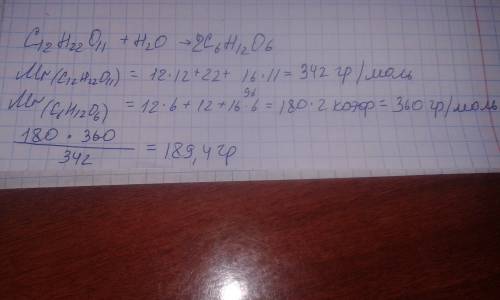 C₁₂H₂₂O₁₁ + H₂O → 2C₆H₁₂O₆
Mr(C₁₂H₂₂O₁₁) = 12·12+22+ 16·11 = 342 гр/моль
96
Mr(C₆H₁₂O₆) = 12·6+12+16·6 = 180·2 коэф = 360 гр/моль
180 · 360
342
= 189,4 гр